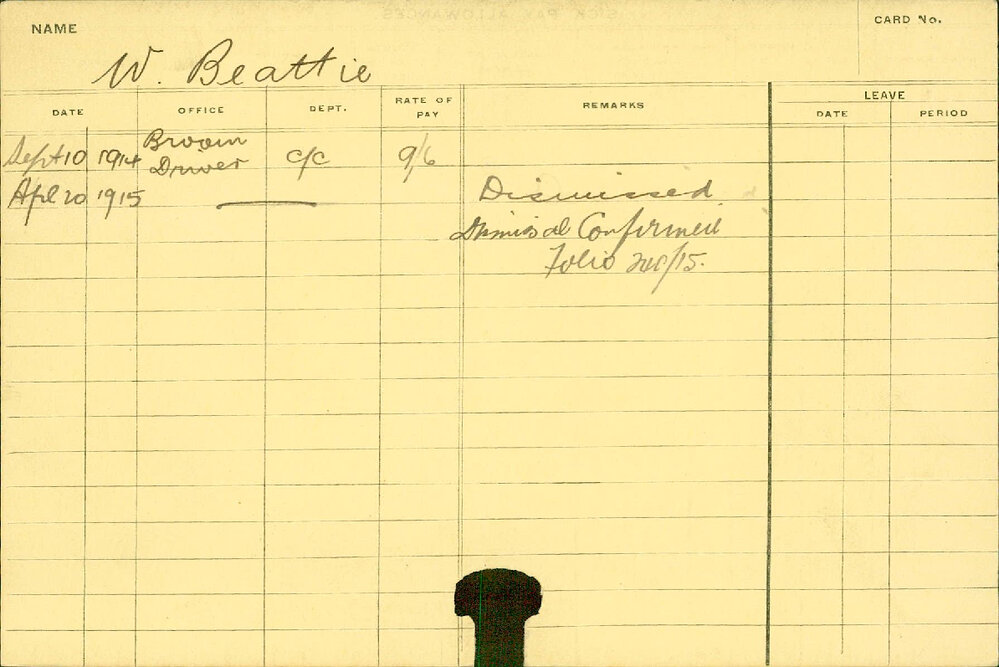 NAME
CARD No.
W. Beattie
DATE OFFICE DEPT. RATE OF PAY REMARKS LEAVE
DATE PERIOD
Sept 10 1914 Broom Driver c/c 9/6
Apl 20 1915 Dismissed.
Dismissal Confirmed
Folio /15.